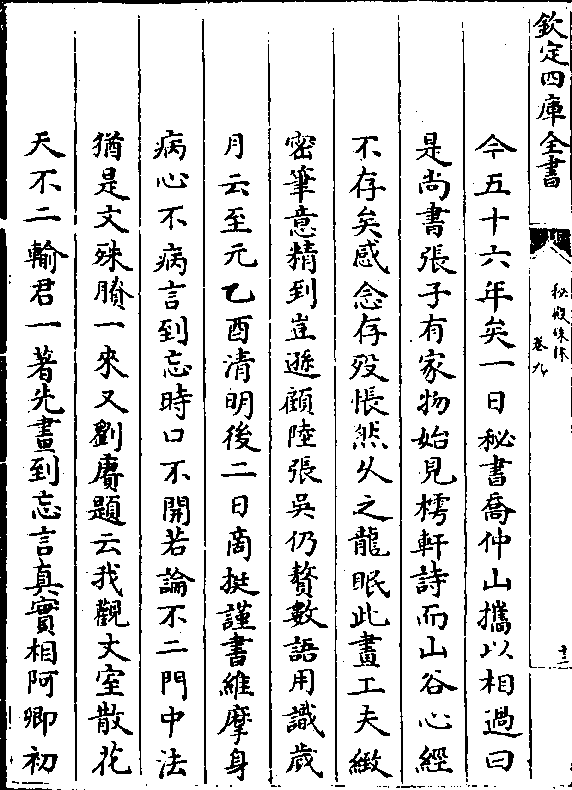 欽定四庫全書
秘殿珠林
卷九
十二
今五十六年矣一日秘書喬仲山攜以相過曰
是尚書張子有家物始見樗軒詩而山谷心經
不存矣感念存歿悵然久之龍眠此畫工夫緻
密筆意精到豈遜顧陸張吳仍贅數語用識歲
月云至元乙酉清明後二日商挺謹書維摩身
病心不病言到忘時口不開若論不二門中法
猶是文殊賸一來又劉賡題云我觀丈室散花
天不二輸君一著先畫到忘言真實相阿卿初